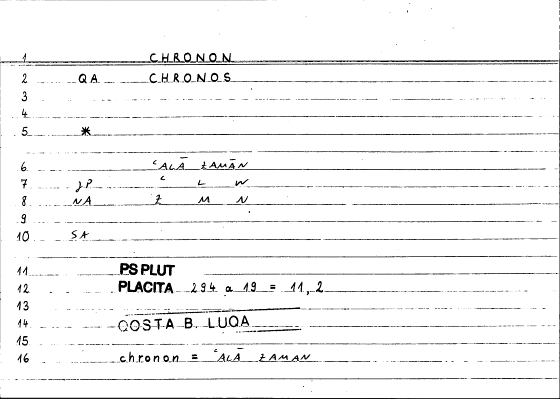 1 CHRONON
2 QA CHRONOS
3
4
5 *
6 ʿALĀ ZAMĀN
7 JP ʿ L W
8 NA Z M N
9
10 SA
11 PS PLUT
12 PLACITA 294 a 19 = 11,2
13
14 QOSTA B. LUQA
15
16 chronon = ʿALĀ ZAMAN